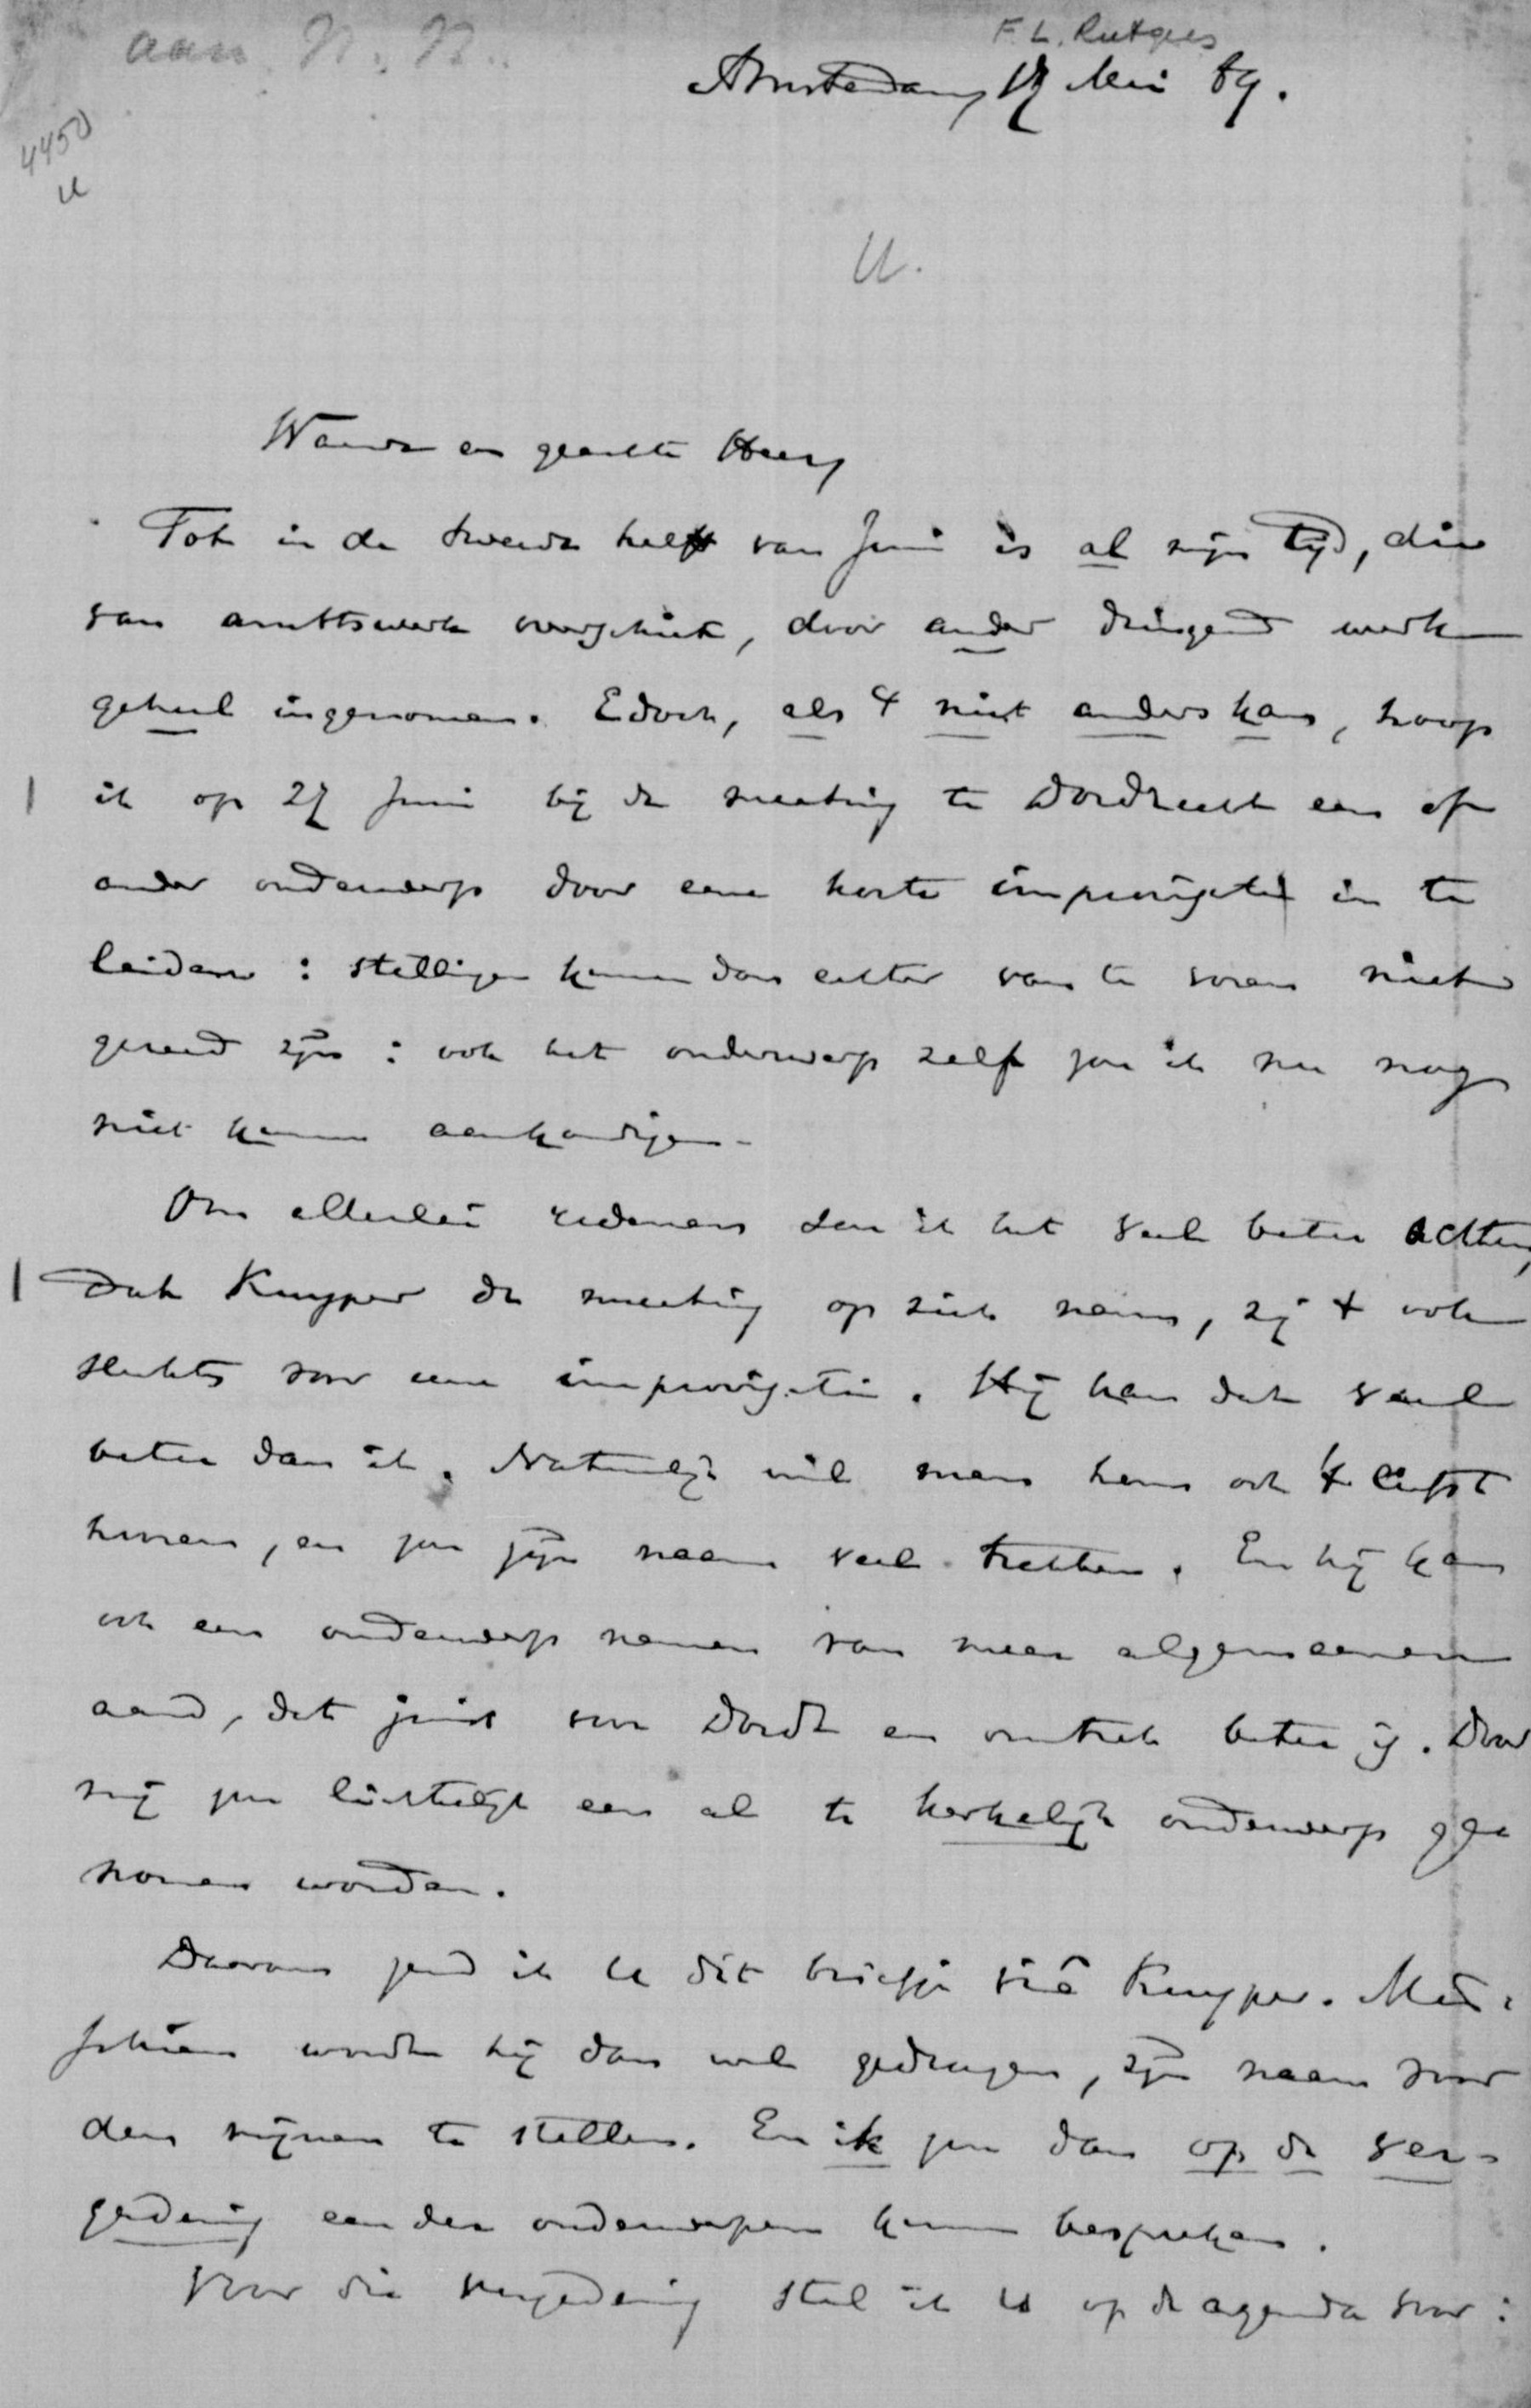 aan N. N.
F. L. Rutgers
Amsterdam, 17 Mei 89.
4450
U
U.
Waarde en geachte Heer,
Tot in de tweede helft van Juni is al mijn tijd, die
van ambtswerk overschiet, door ander dringend werk
geheel ingenomen. Edoch, als 't niet anders kan, hoop
ik op 27 Juni bij de meeting te Dordrecht een of
ander onderwerp door eene korte improvisatie in te
leiden: stellingen kunnen dan echter van te voren niet
gereed zijn: ook het onderwerp zelf zou ik nu nog
niet kunnen aankondigen.
Om allerlei redenen zou ik het veel beter achten,
dat Kuyper de meeting op zich neme, zij 't ook
slechts voor eene improvisatie. Hij kan dat veel
beter dan ik. Natuurlijk wil men hem ook 't liefst
hooren, en zou zijn naam veel trekken. En hij kan
ook een onderwerp nemen van meer algemeenen
aard, dat juist voor Dordt en omtrek beter is. Door
mij zou lichtelijk een al te kerkelijk onderwerp ge
nomen worden.
Daarom zend ik U dit briefje viâ Kuyper. Mis-
schien wordt hij dan wel gedrongen, zijn naam voor
den mijnen te stellen. En ik zou dan op de ver-
gadering een der onderwerpen kunnen bespreken.
Voor die vergadering stel ik U op de agenda voor: